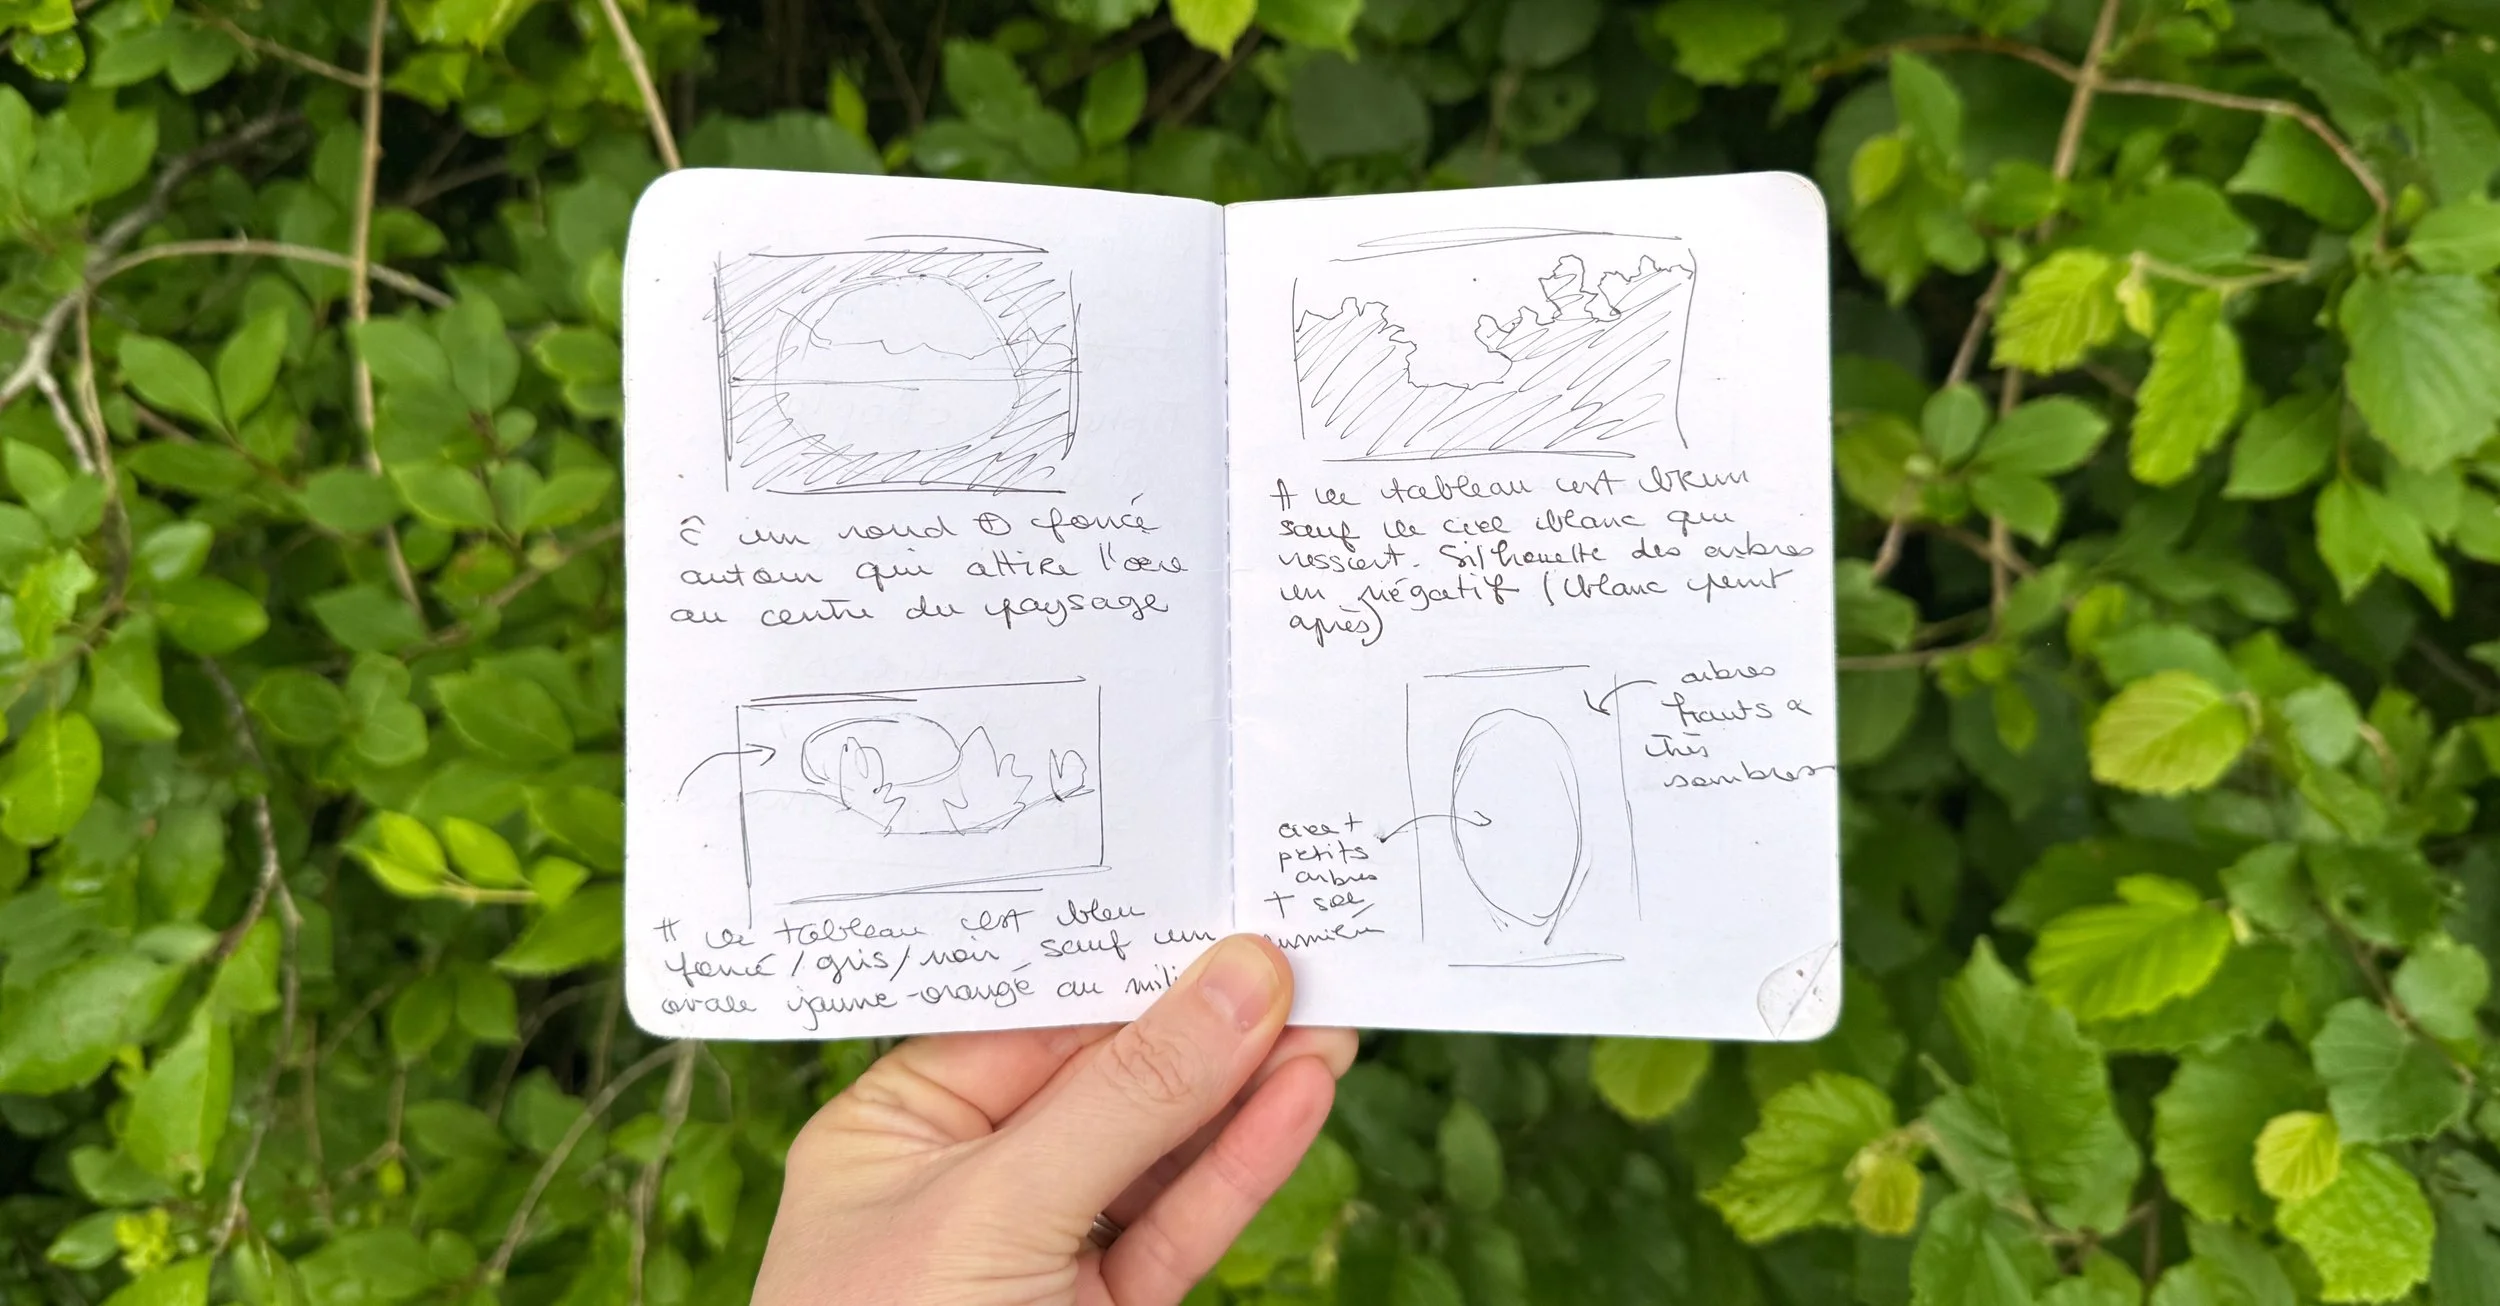 ĉ un rond ⊕ foncé
autour qui attire l'œil
au centre du paysage
# le tableau est bleu
foncé / gris / noir sauf un
ovale jaune-orangé au mili
# le tableau est brun
sauf le ciel blanc qui
ressort. Silhouette des arbres
en négatif (blanc peint
après)
arbres
hauts &
très
sombres
ciel +
petits
arbres
+ sol